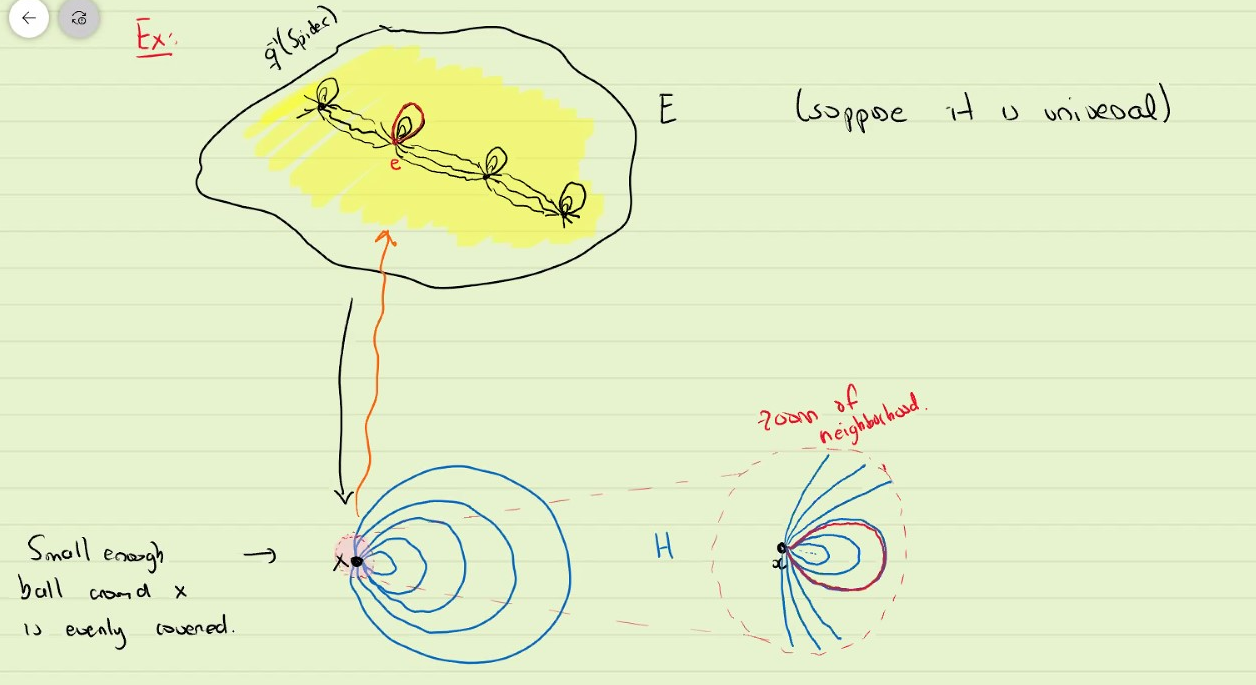 Ex:
q⁻¹(Spider)
E (suppose it is universal)
e
zoom of
neighborhood.
Small enough
ball around x
is evenly covered.
x
H
x